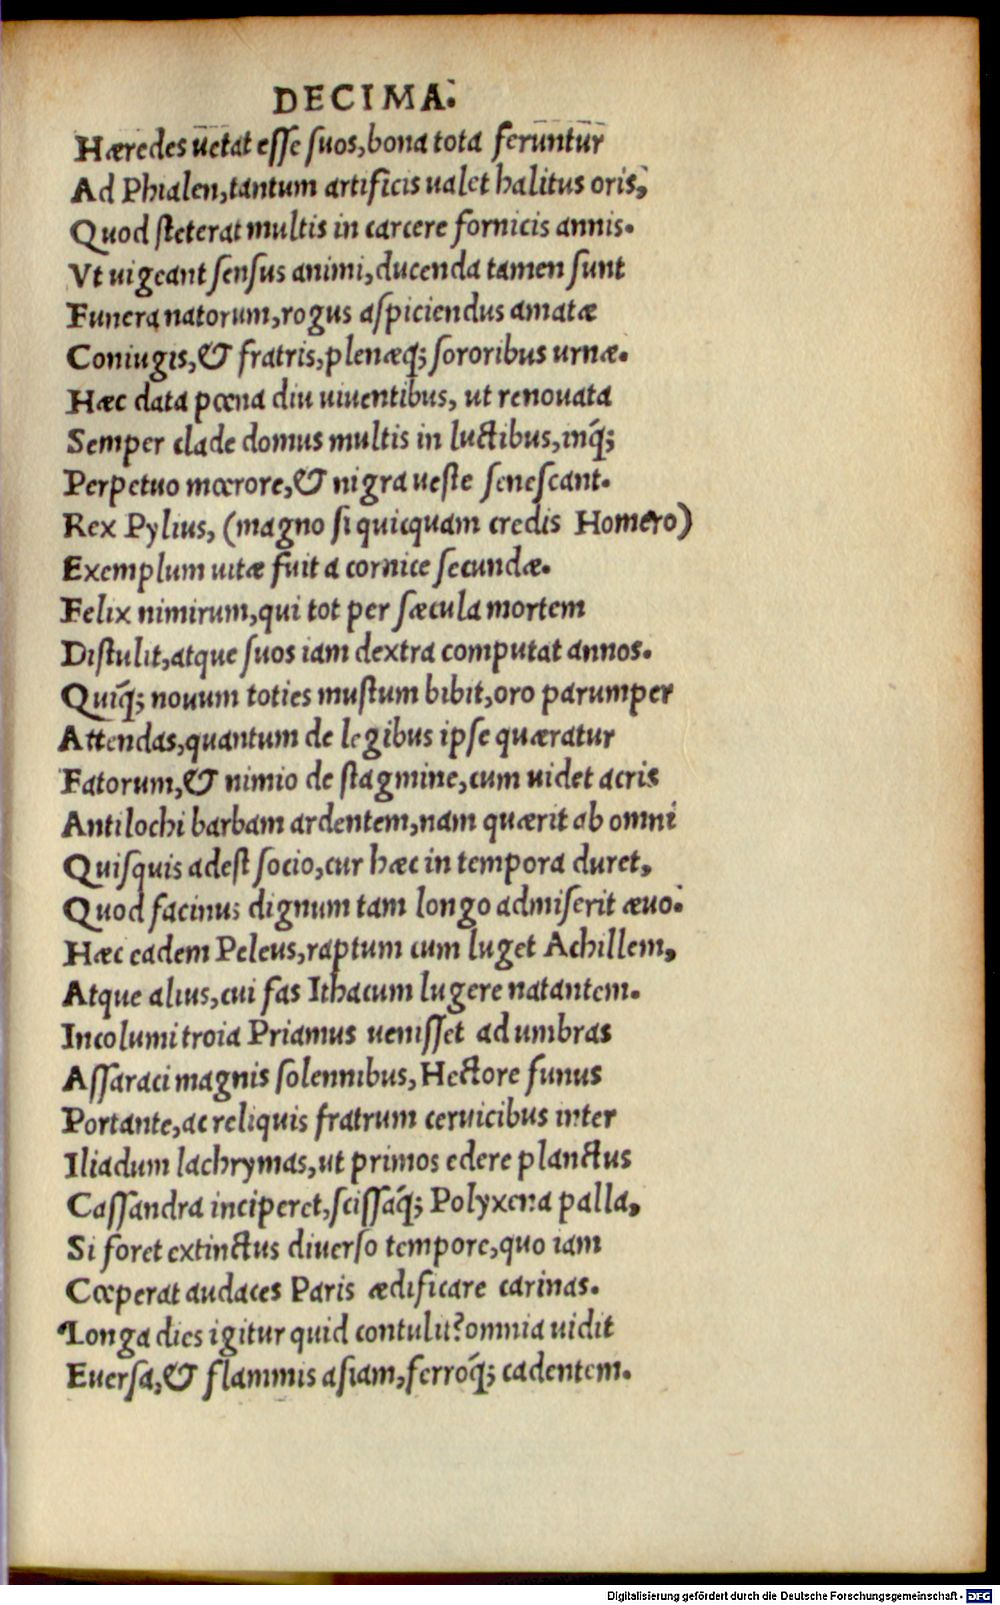 DECIMA.
Hæredes uetat esse suos, bona tota feruntur
Ad Phialen, tantum artificis ualet halitus oris,
Quod steterat multis in carcere fornicis annis.
Vt uigeant sensus animi, ducenda tamen sunt
Funera natorum, rogus aspiciendus amatæ
Coniugis, & fratris, plenæq; sororibus urnæ.
Hæc data pœna diu uiuentibus, ut renouata
Semper clade domus multis in luctibus, inq̃;
Perpetuo mœrore, & nigra ueste senescant.
Rex Pylius, (magno si quicquam credis Homero)
Exemplum uitæ fuit a cornice secundæ.
Felix nimirum, qui tot per sæcula mortem
Distulit, atque suos iam dextra computat annos.
Quiq̃; nouum toties mustum bibit, oro parumper
Attendas, quantum de legibus ipse quæratur
Fatorum, & nimio de stagmine, cum uidet acris
Antilochi barbam ardentem, nam quærit ab omni
Quisquis adest socio, cur hæc in tempora duret,
Quod facinus dignum tam longo admiserit æuo.
Hæc eadem Peleus, raptum cum luget Achillem,
Atque alius, cui fas Ithacum lugere natantem.
Incolumi troia Priamus uenisset ad umbras
Assaraci magnis solennibus, Hectore funus
Portante, ac reliquis fratrum ceruicibus inter
Iliadum lachrymas, ut primos edere planctus
Cassandra inciperet, scissaq̃; Polyxena palla,
Si foret extinctus diuerso tempore, quo iam
Cœperat audaces Paris ædificare carinas.
Longa dies igitur quid contulit? omnia uidit
Euersa, & flammis asiam, ferroq̃; cadentem.
Digitalisierung gefördert durch die Deutsche Forschungsgemeinschaft - DFG